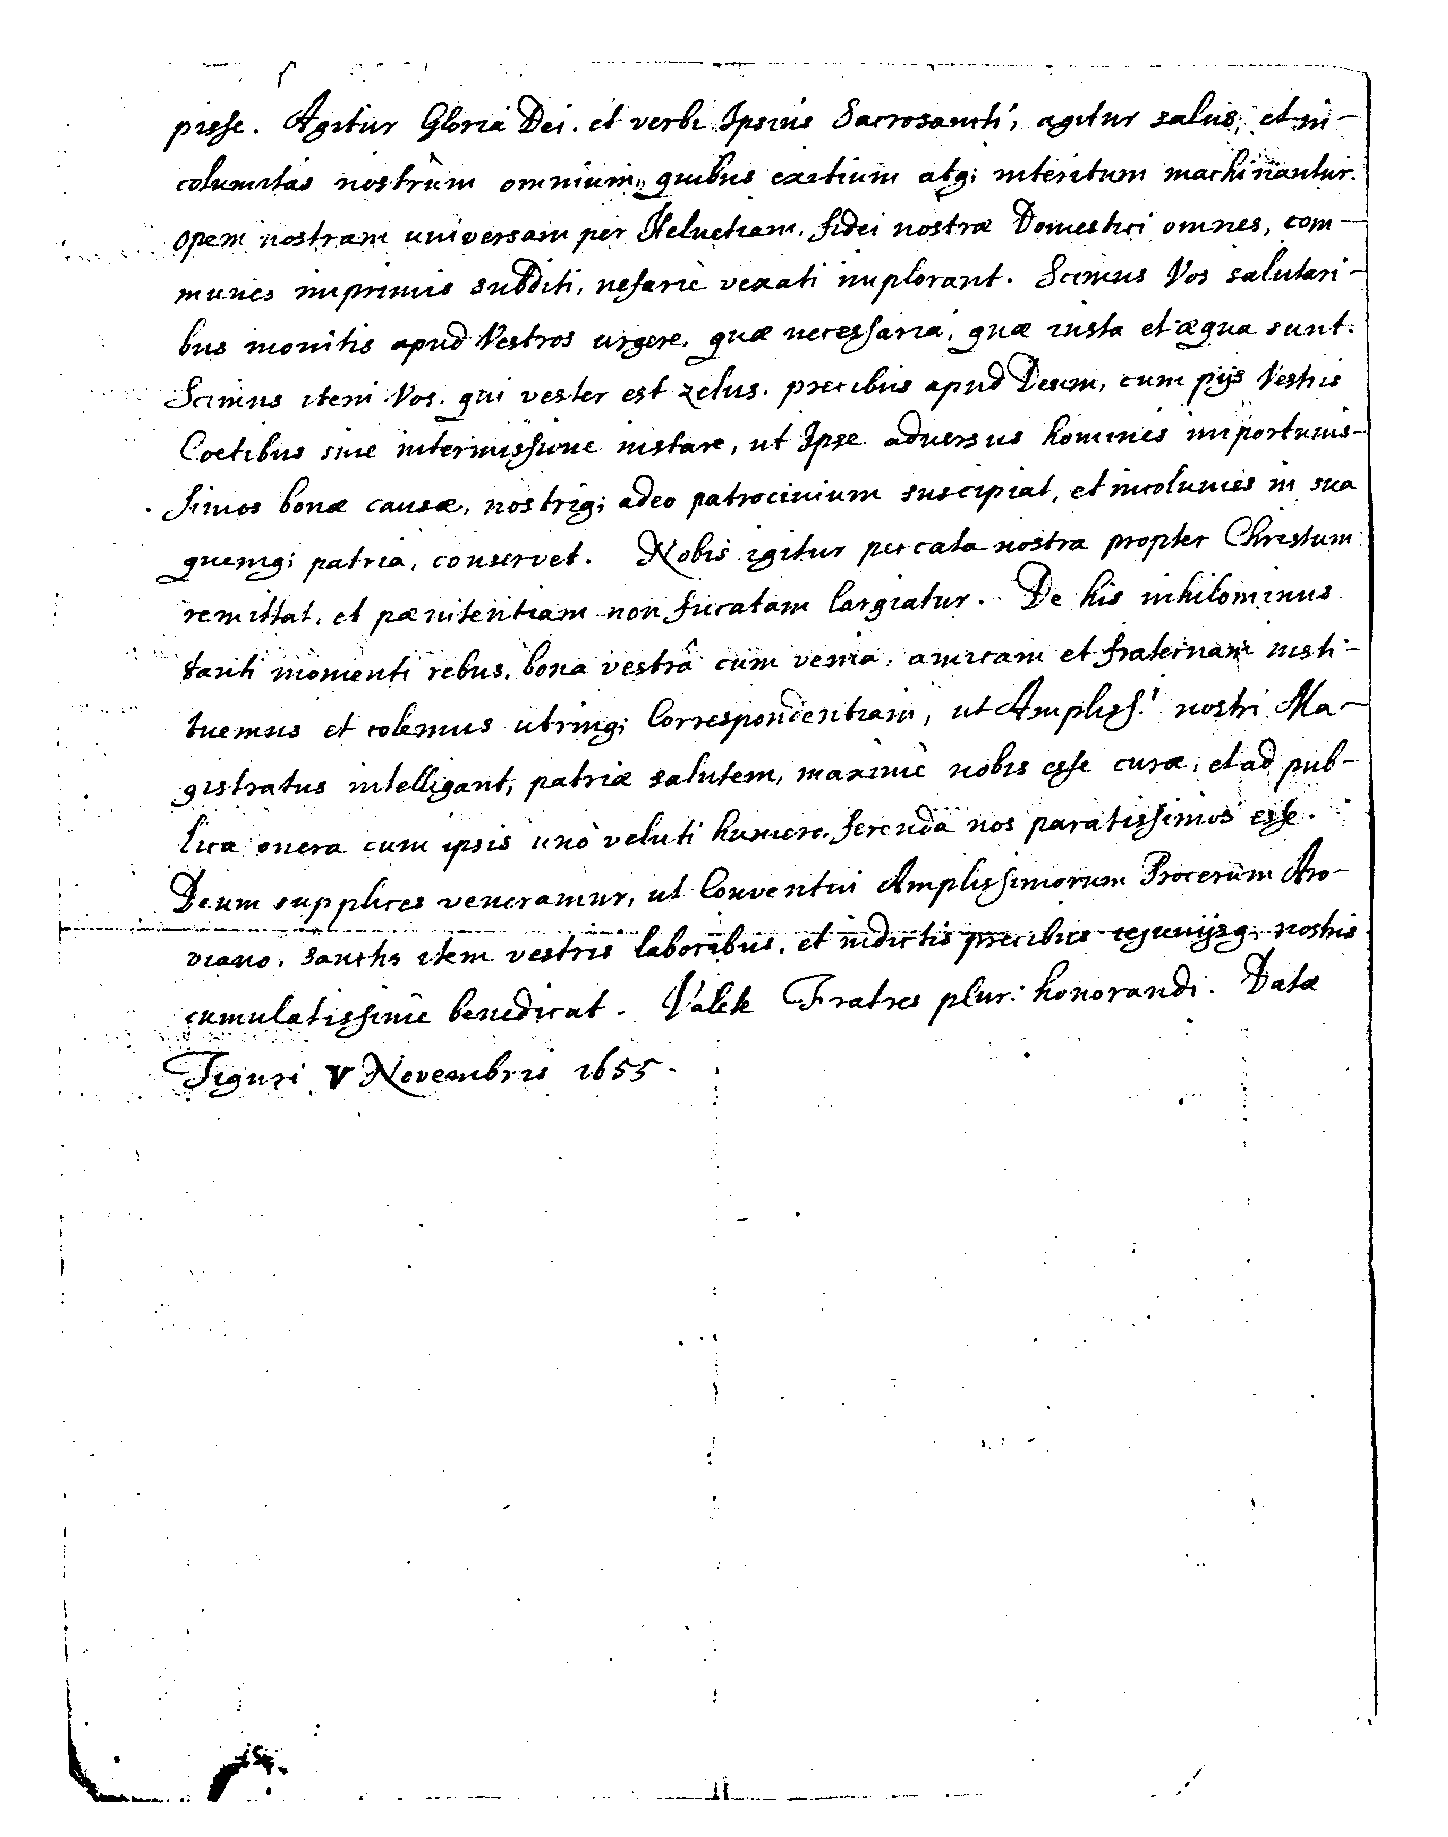 pisse. Agitur Gloria Dei. et verbi Ipsius Sacrosancti, agitur salus, et in-
columitas nostrûm omnium, quibus exitium atq; interitum machinantur.
opem nostram universam per Helvetiam, fidei nostræ Domestici omnes, com-
munes inprimis subditi, nefariè vexati implorant. Scimus Vos salutari-
bus monitis apud Vestros urgere, quæ necessaria, quæ iusta et æqua sunt.
Scimus item Vos, qui vester est zelus, precibus apud Deum, cum pijs Vestris
Coetibus sine intermissione instare, ut Ipse adversus homines importunis-
simos bonæ causæ, nostriq; adeo patrocinium suscipiat, et incolumes in sua
quemq; patria, conservet. Nobis igitur peccata nostra propter Christum
remittat, et pænitentiam non fucatam largiatur. De his nihilominus
tanti momenti rebus, bona vestrâ cum venia, amicam et fraternam insti-
tuemus et colemus utrinq; Correspondentiam, ut Ampliss.i nostri Ma-
gistratus intelligant, patriæ salutem, maximè nobis esse curæ, et ad pub-
lica onera cum ipsis unò veluti humero ferenda nos paratissimos esse.
Deum supplices veneramur, ut Conventui Amplissimorum Procerûm Aro-
viano, sanctis item vestris laboribus, et indictis precibus iejunijsq; nostris
cumulatissimè benedicat. Valete Fratres plur: honorandi. Datæ
Tiguri V Novembris 1655.